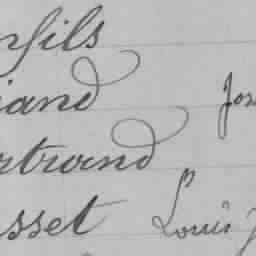 nfils
iand Jos
rtrand
sset Louis J